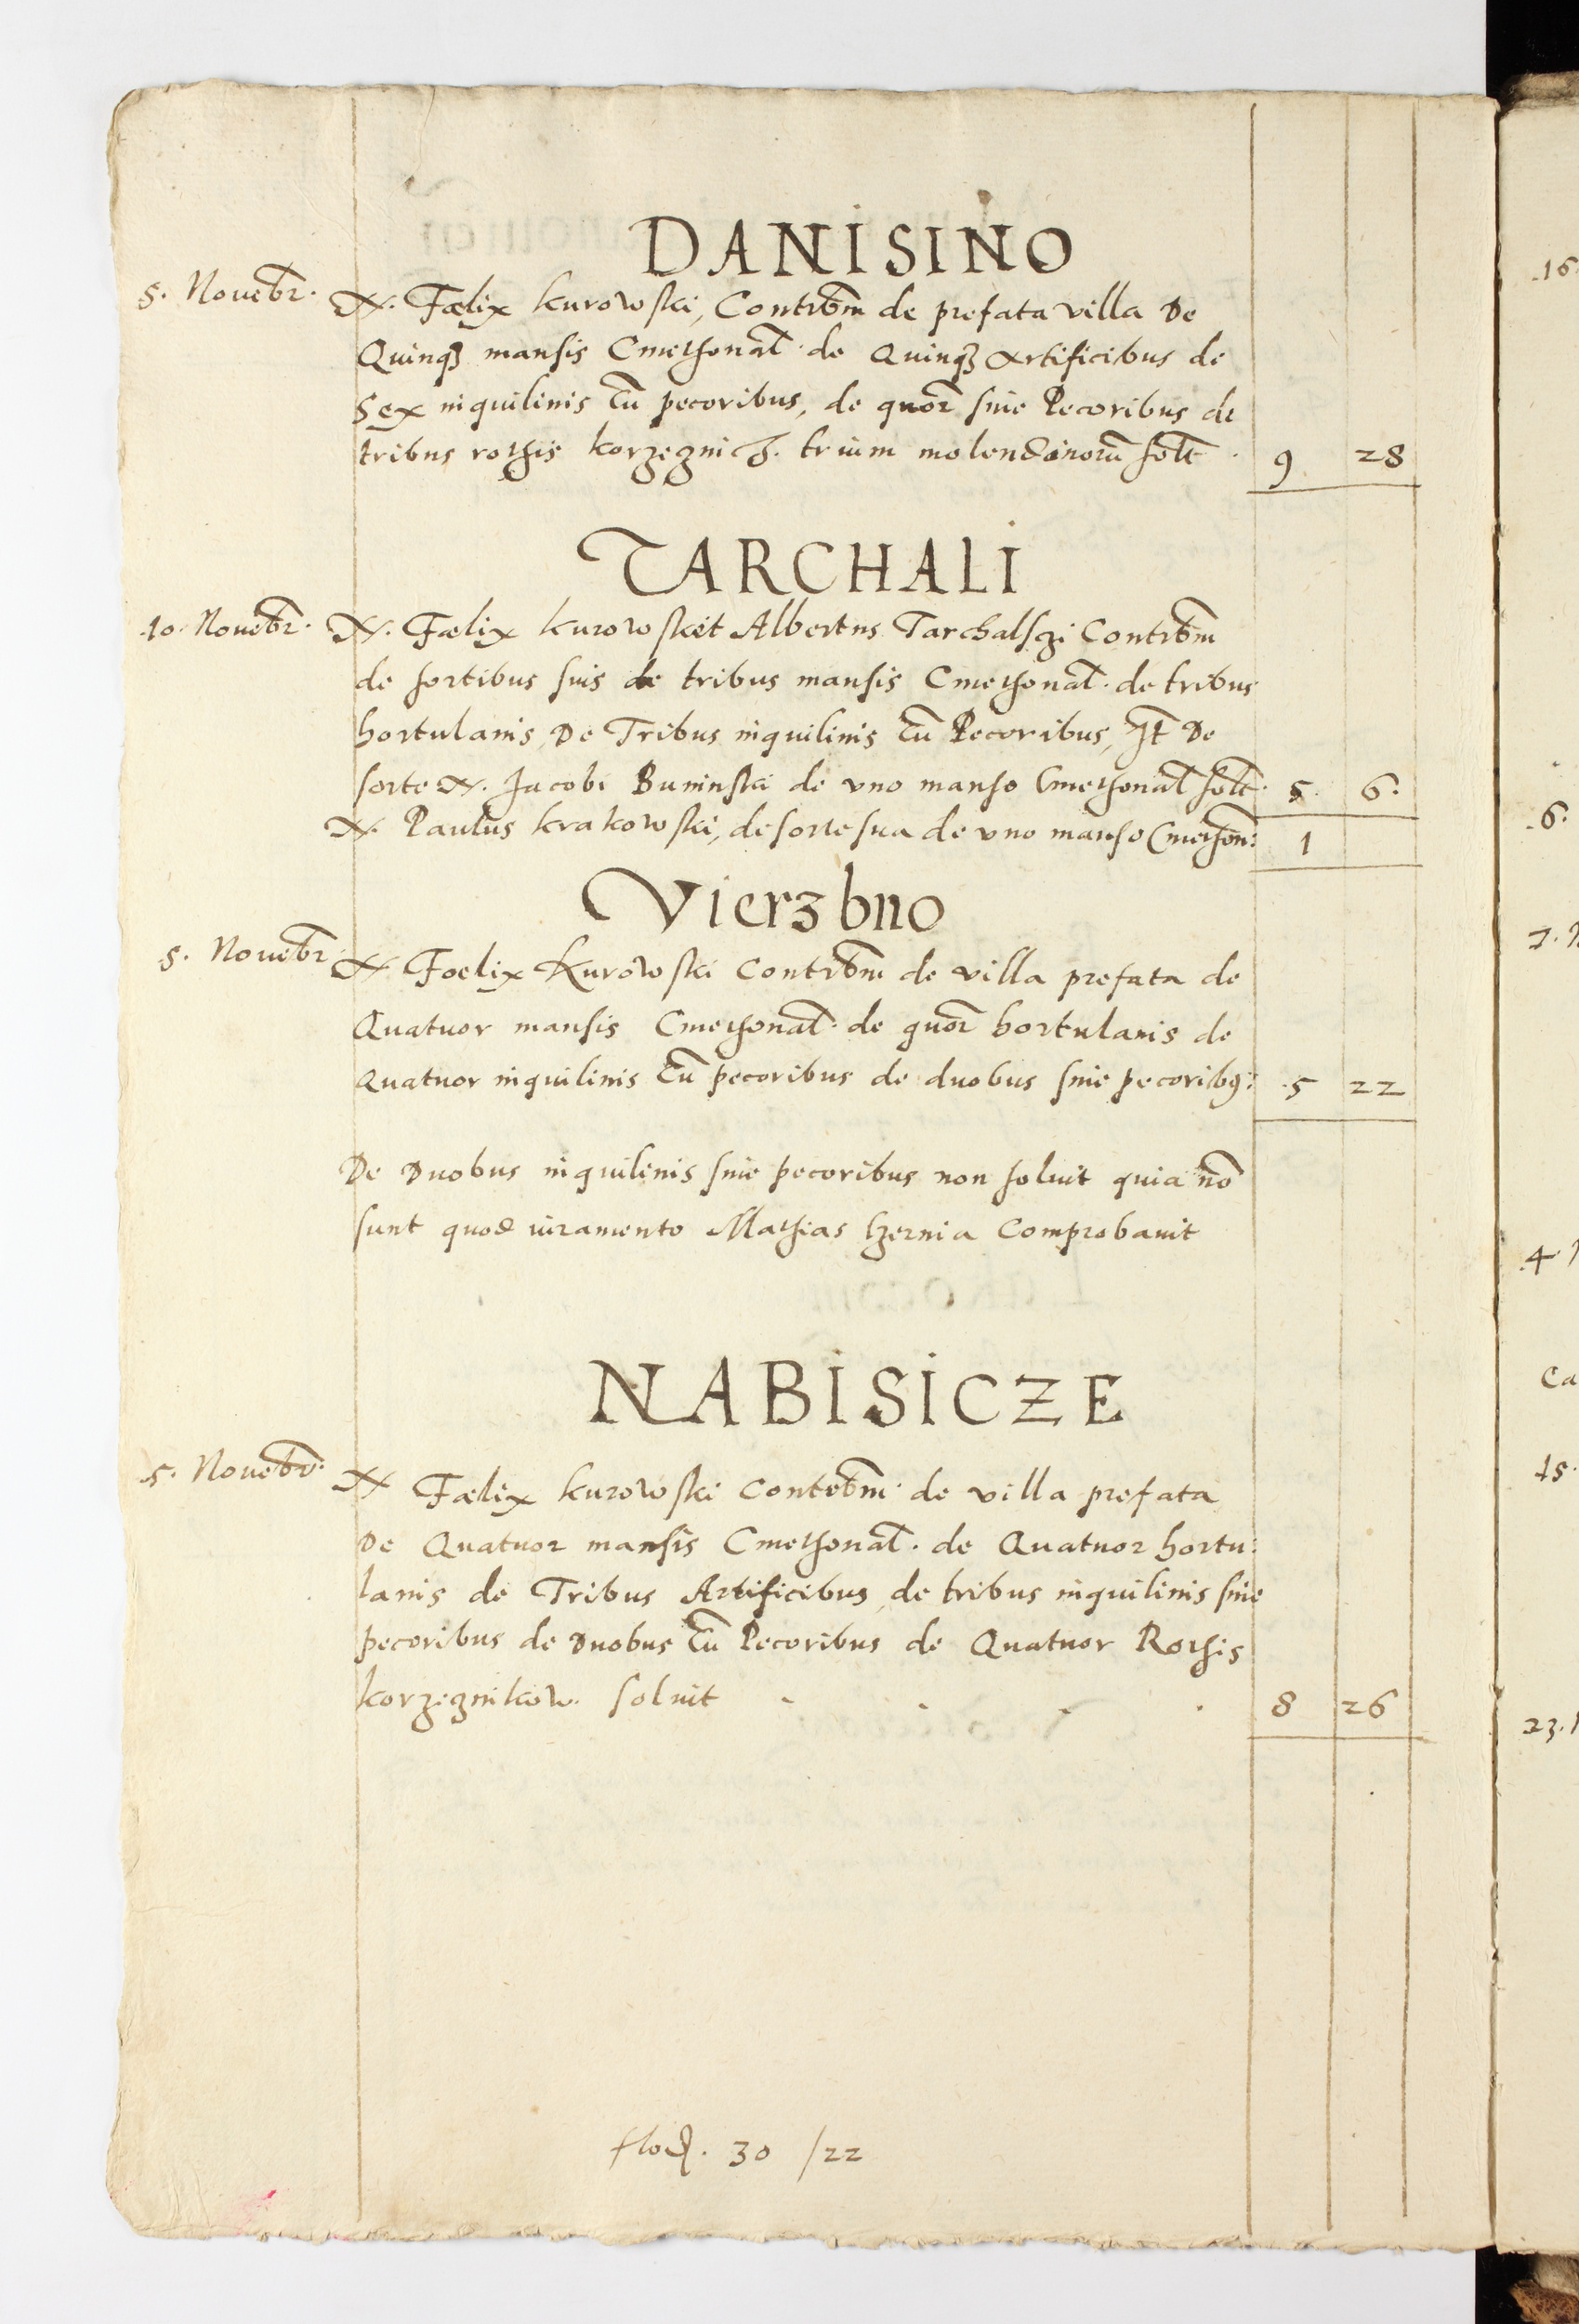 DANISINO
5. Nouebr. N. Fœlix kurowski, Contrbm de prefata villa De
Quinqȝ mansis Cmethonal. de Quinqȝ Artificibus de
Sex inquilinis Cū pecoribus, de quor sine Pecoribus de
tribus rothis korzeznich. trium molendinorū solt. 9 28
TARCHALI
10. Nouebr. N. Fœlix kurowski et Albertus Tarchalszi Contrbm
de sortibus suis de tribus mansis Cmethonal. de tribus
hortulanis, De Tribus inquilinis Cū Pecoribus, It De
sorte N. Jacobi Buninski de vno manso Cmethonal solt. 5. 6.
N. Paulus krakowski, de sorte sua de vno manso Cmethon: 1
Vierzbno
5. Nouebr N. Foelix Kurowski Contrbm de villa prefata de
Quatuor mansis Cmethonal. de quor hortulanis de
Quatuor inquilinis Cū pecoribus de duobus sine pecorib9: 5 22
De Duobus inquilinis sine pecoribus non soluit quia nō
sunt quod iuramento Mathias Czernia Comprobauit
NABISICZE
5. Nouebr. N Fœlix kurowski Contrbm. de villa prefata
De Quatuor mansis Cmethonal. de Quatuor hortu:
lanis de Tribus Artificibus, de tribus inquilinis sine
pecoribus de Duobus Cū Pecoribus de Quatuor Rothis
korzeznikow. soluit 8 26
30 /22
16.
6.
7.
4.
Ca
15.
23.